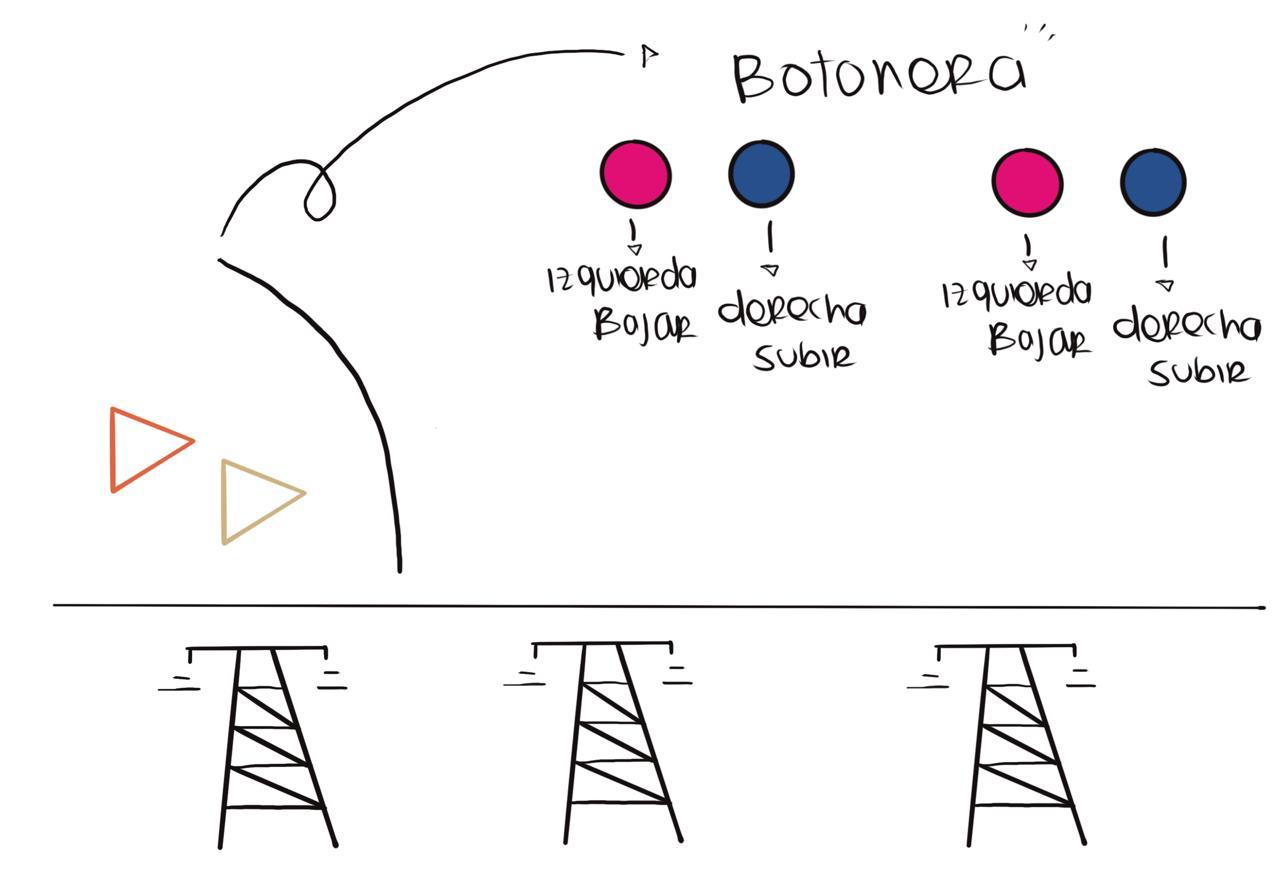 Botonera
izquierda
Bajar
derecha
subir
izquierda
Bajar
derecha
subir